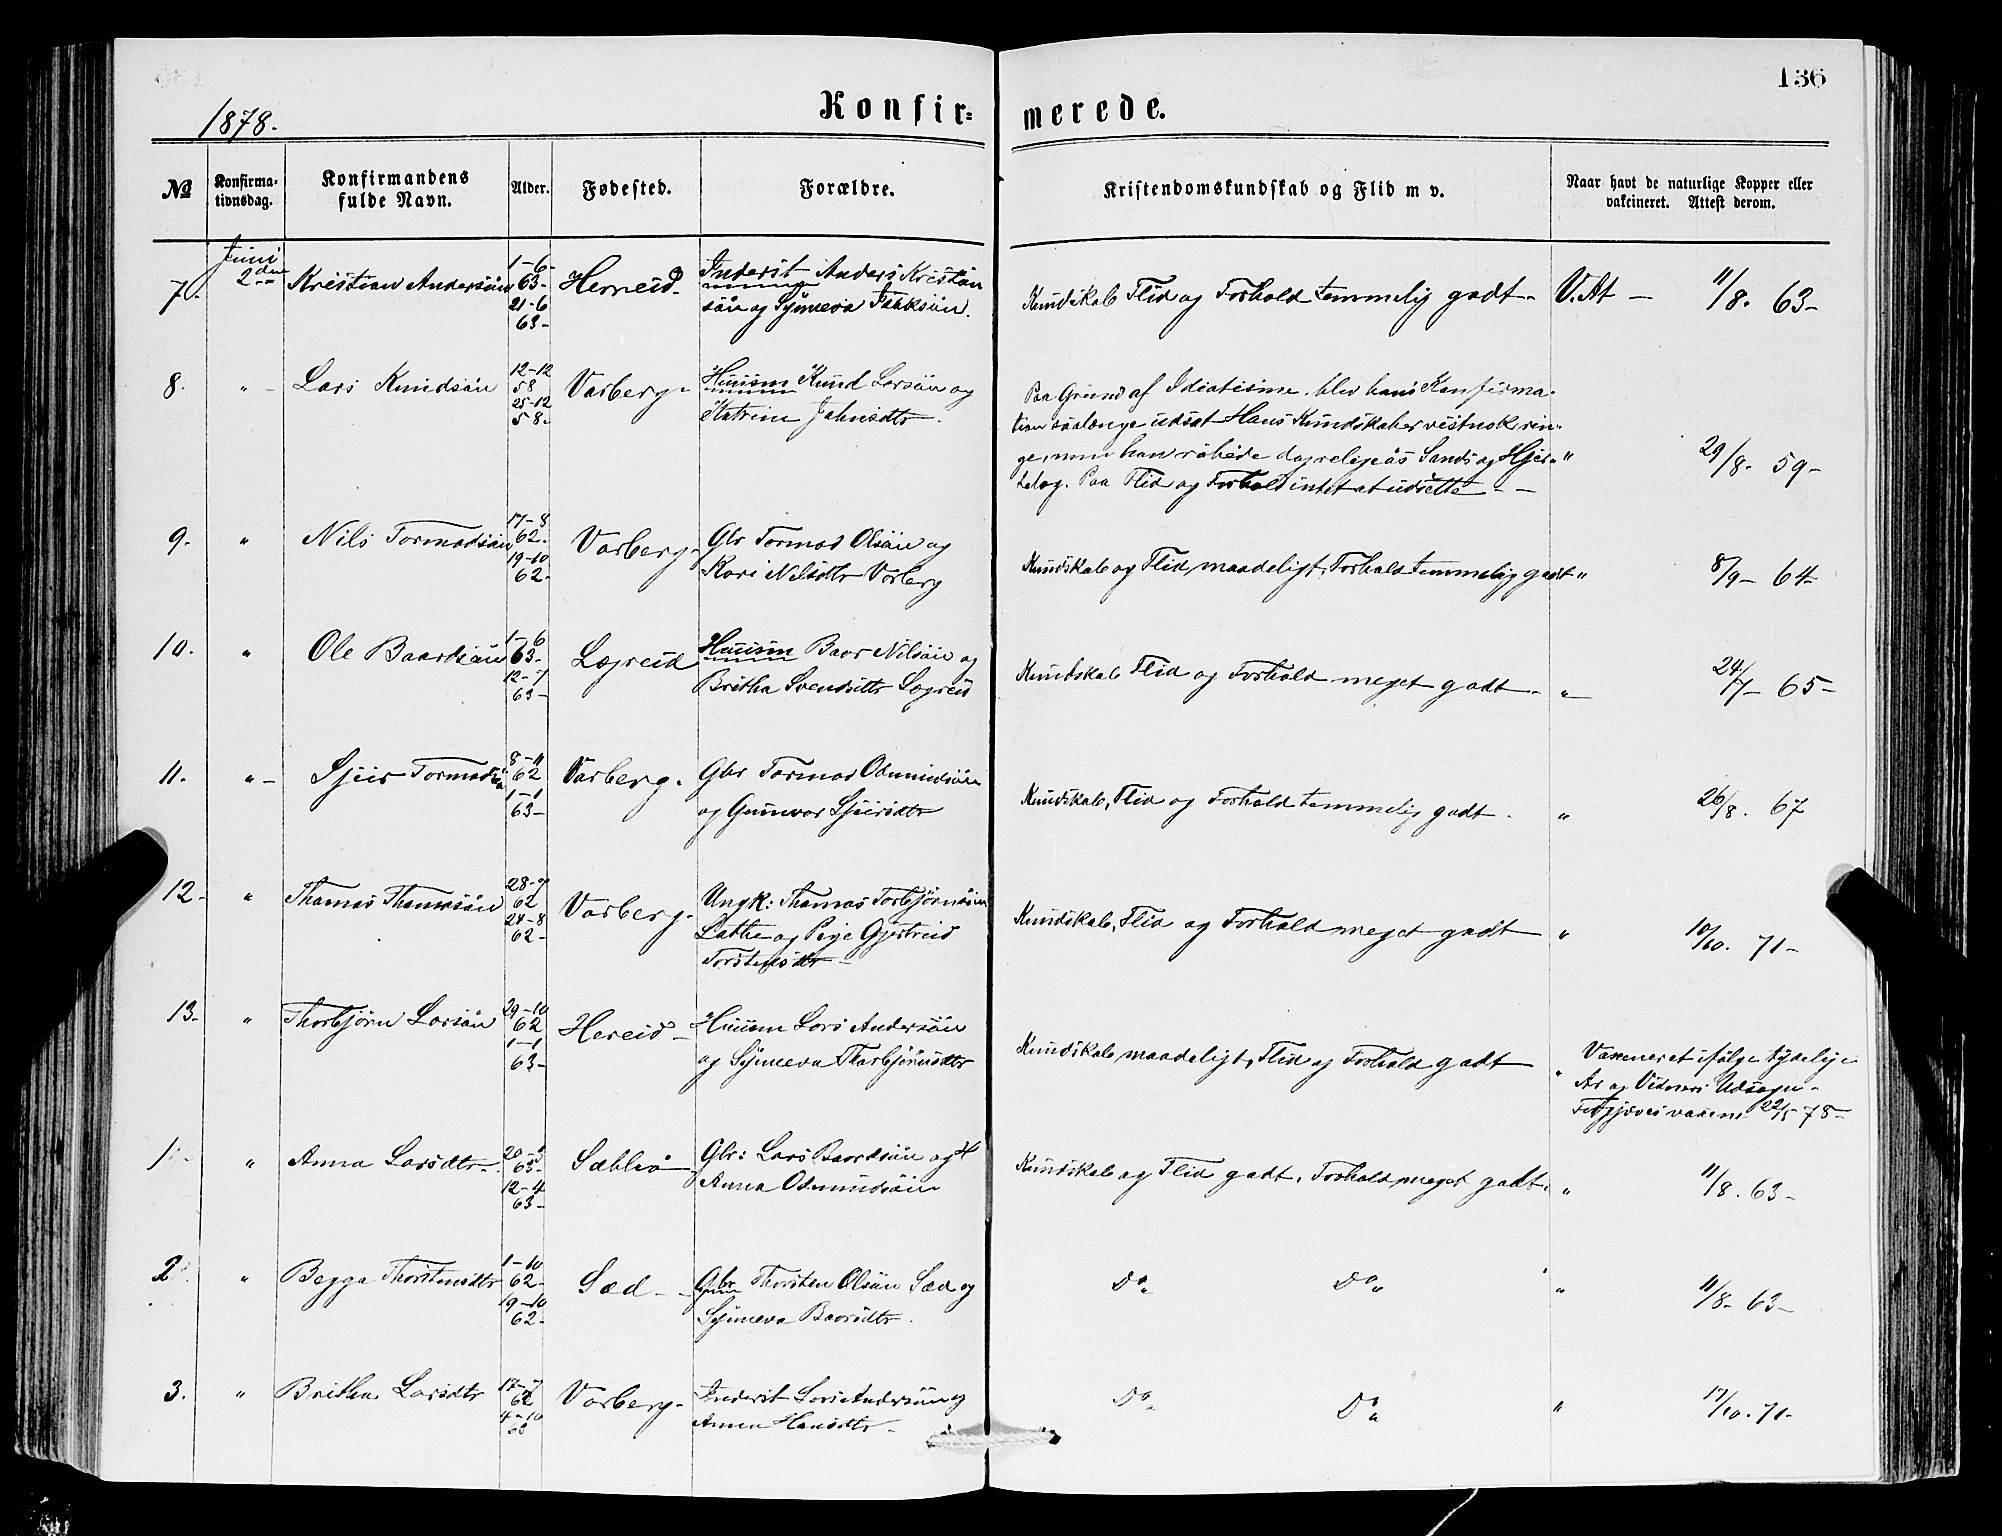 136
1878.
Konfirmerede.
No Konfirmationsdag. Konfirmandens fulde Navn. Alder. Fødested. Forældre. Kristendomskundskab og Flid m v. Naar havt de naturlige Kopper eller vakcineret. Attest derom.
7. Juni 2den Kristian Andersøn 1-6- 63- 21-6 63- Herreid- Inderst Anders Kristian
søn og Synneva Isaksøn. Kundskab Flid og Forhold temmelig godt- V. At - 11/8. 63-
8. " - Lars Knudsøn 12-12 58 25-12 58. Varberg- Huusm Knud Larsøn og
Katrine Johnsdtr. Paa Grund af Idiotisme blev hans Konfirma-
tion saalænge udsat Hans Kundskaber vistnok rin-
ge, men han röbede dog religiøs Sands og Hjer- " 29/8- 59-
telag. Paa Flid og Forhold intet at udsette - -
9. " Nils Tormodsøn 17-8 62. 19-10 62- Varberg- Gbr Tormod Olsøn og
Kari Nilsdtr Varberg Kundskab og Flid maadeligt, Forhold temmelig godt " 8/9- 64-
10. " Ole Baardsøn 1-6 63- 12-7 63- Lægreid Huusm Baar Nilsøn og
Britha Svendsdtr Lægreid Kundskab Flid og Forhold meget godt- " 24/7- 65-
11. " - Sjur Tormods 8-11 62 1-1 63- Varberg. Gbr Tormod Odmundsøn
og Gunvor Sjursdtr Kundskab, Flid og Forhold temmelig godt. " 26/8. 67
12- " Thomas Thomasøn 28-7 62 24-8 62- Varberg- Ungk: Thomas Torbjørnsøn
Lothe og Pige Gjertreid
Torstensdtr - Kundskab, Flid og Forhold meget godt " 10/10. 71-
13- " Thorbjørn Larsøn 29-10 62 1-1 63- Hereid- Huusm Lars Andersøn
og Synneva Thorbjørnsdtr Kundskab maadeligt, Flid og Forhold godt " Vaccineret ifølge tydelige
Ar og Vidners Udsagn-
22/5 78-
1. " Anna Larsdtr- 63- 12-4 63- Sæblø Gbr: Lars Baardsøn og H
Anna Odmundsøn Kundskab og Flid godt. Forhold meget godt- " 11/8. 63-
2. " Begga Thorstensdtr 1-10 62- 19-10 62- Sæd - Gbr Thorsten Olsøn Sæd og
Synneva Baarsdtr. Do " Do " " 11/8- 63-
3. " Britha Larsdtr 17-7 62 4-10 63 Varberg- Inderst Lars Andersøn og
Anna Hansdtr- Do " Do " " 17/10. 71-